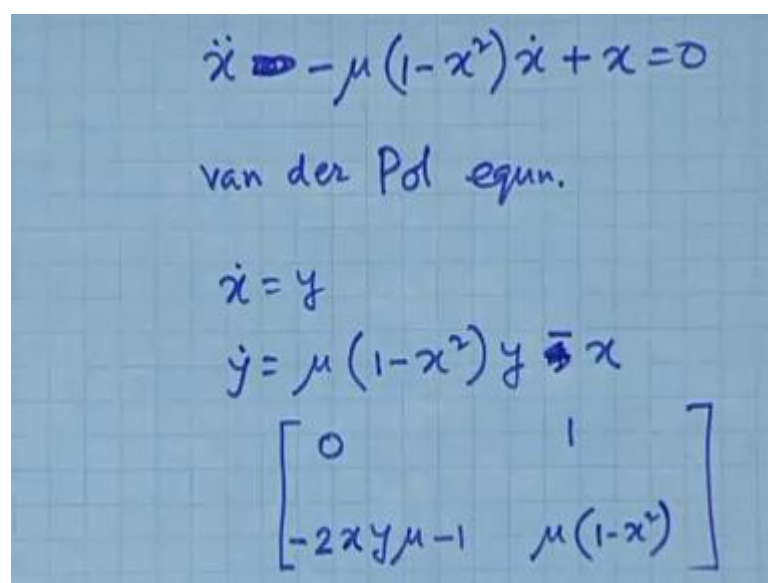 ẍ - μ(1-x²)ẋ + x = 0
van der Pol equn.
ẋ = y
ẏ = μ(1-x²)y - x
[ 0 1
-2xyμ-1 μ(1-x²) ]